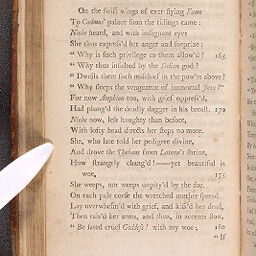 On the swift wings of ever flying Fame
To Cadmus' palace soon the tidings came:
Niobe heard, and with indignant eyes
She thus express'd her anger and surprize:
“ Why is such privilege to them allow'd? 165
“ Why thus insulted by the Delian god?
“ Dwells there such mischief in the pow'rs above?
“ Why sleeps the vengeance of immortal Jove?”
For now Amphion too, with grief oppress'd,
Had plung'd the deadly dagger in his breast. 170
Niobe now, less haughty than before,
With lofty head directs her steps no more.
She, who late told her pedigree divine,
And drove the Thebans from Latona's shrine,
How strangely chang'd!——yet beautiful in
woe, 175
She weeps, nor weeps unpity'd by the foe.
On each pale corse the wretched mother spread
Lay overwhelm'd with grief, and kiss'd her dead,
Then rais'd her arms, and thus, in accents slow,
“ Be sated cruel Goddess! with my woe; 180
“ If